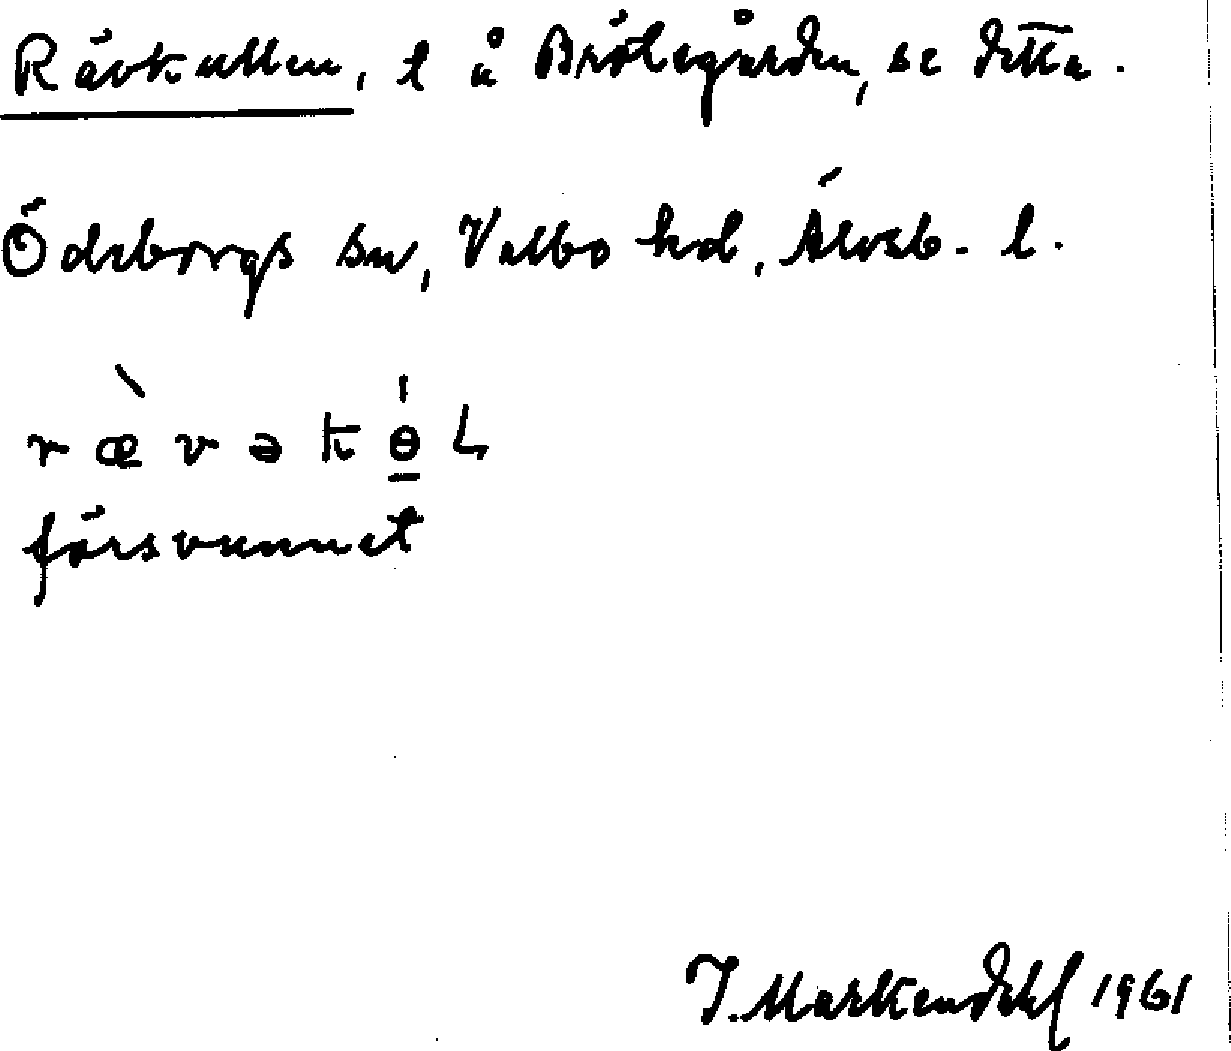 Rävkullen, t å Brötegården, se detta.
Ödeborgs sn, Valbo hd, Älvsb. l.
r æ̀ v ə k ɵ́ L
försvunnet
I. Markendahl 1961